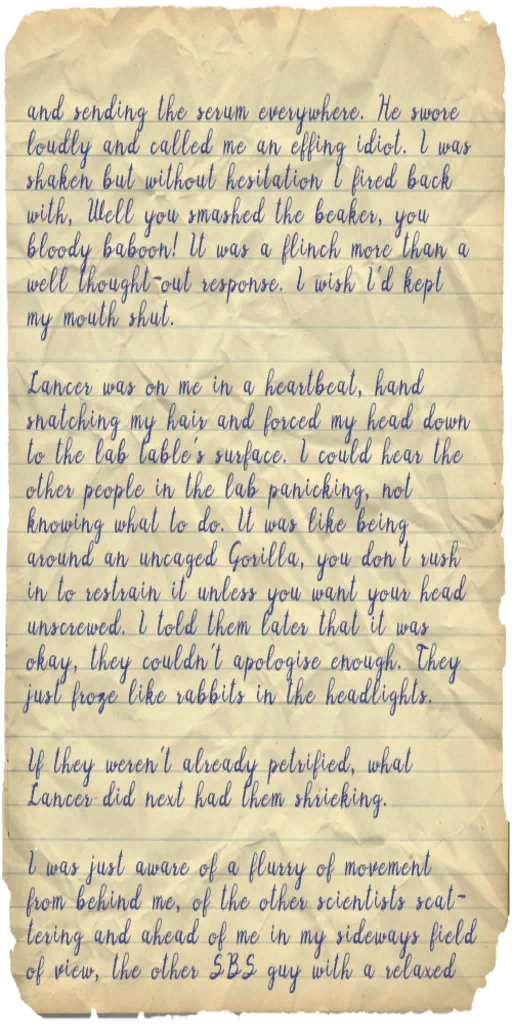 and sending the serum everywhere. He swore
loudly and called me an effing idiot. I was
shaken but without hesitation I fired back
with, Well you smashed the beaker, you
bloody baboon! It was a flinch more than a
well thought-out response. I wish I'd kept
my mouth shut.
Lancer was on me in a heartbeat, hand
snatching my hair and forced my head down
to the lab table's surface. I could hear the
other people in the lab panicking, not
knowing what to do. It was like being
around an uncaged Gorilla, you don't rush
in to restrain it unless you want your head
unscrewed. I told them later that it was
okay, they couldn't apologise enough. They
just froze like rabbits in the headlights.
If they weren't already petrified, what
Lancer did next had them shrieking.
I was just aware of a flurry of movement
from behind me, of the other scientists scat-
tering and ahead of me in my sideways field
of view, the other SBS guy with a relaxed